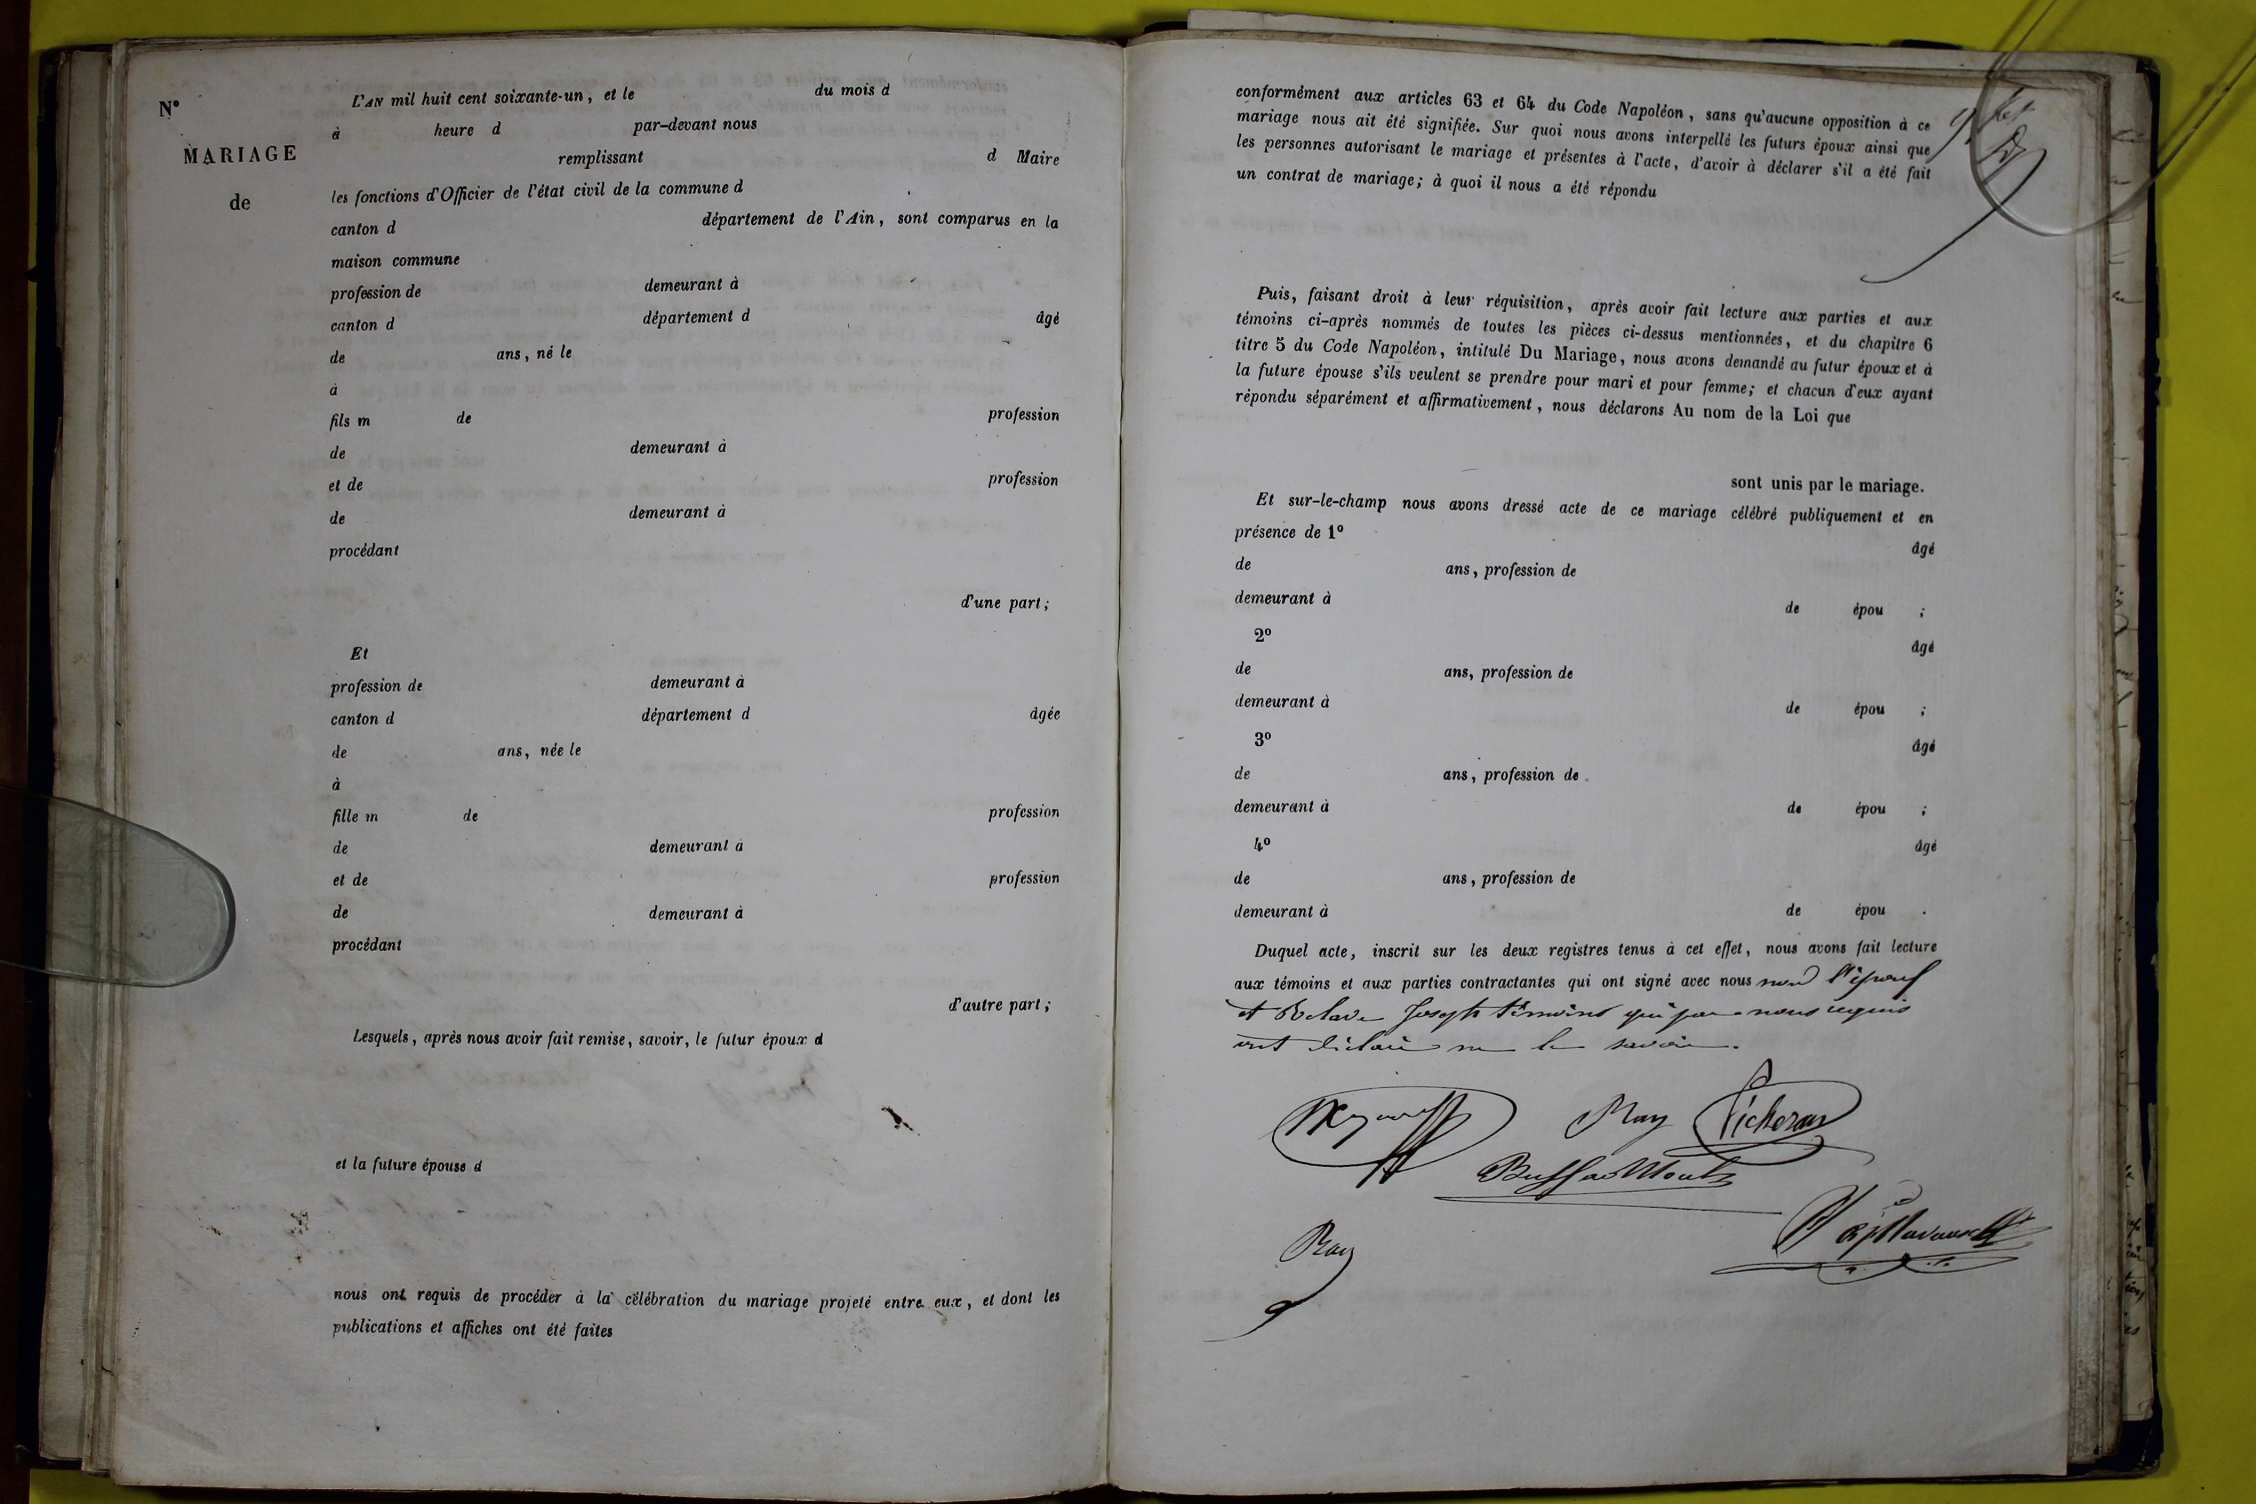 N°
MARIAGE
de
L'AN mil huit cent soixante-un, et le du mois d
à heure d par-devant nous
remplissant d Maire
les fonctions d'Officier de l'état civil de la commune d
canton d département de l'Ain, sont comparus en la
maison commune
profession de demeurant à
canton d département d âgé
de ans, né le
à
fils m de profession
de demeurant à
et de profession
de demeurant à
procédant
d'une part;
Et
profession de demeurant à
canton d département d âgée
de ans, née le
à
fille m de profession
de demeurant à
et de profession
de demeurant à
procédant
d'autre part;
Lesquels, après nous avoir fait remise, savoir, le futur époux d
et la future épouse d
nous ont requis de procéder à la célébration du mariage projeté entre eux, et dont les
publications et affiches ont été faites
conformément aux articles 63 et 64 du Code Napoléon, sans qu'aucune opposition à ce
mariage nous ait été signifiée. Sur quoi nous avons interpellé les futurs époux ainsi que
les personnes autorisant le mariage et présentes à l'acte, d'avoir à déclarer s'il a été fait
un contrat de mariage; à quoi il nous a été répondu
Puis, faisant droit à leur réquisition, après avoir fait lecture aux parties et aux
témoins ci-après nommés de toutes les pièces ci-dessus mentionnées, et du chapitre 6
titre 5 du Code Napoléon, intitulé Du Mariage, nous avons demandé au futur époux et à
la future épouse s'ils veulent se prendre pour mari et pour femme; et chacun d'eux ayant
répondu séparément et affirmativement, nous déclarons Au nom de la Loi que
sont unis par le mariage.
Et sur-le-champ nous avons dressé acte de ce mariage célébré publiquement et en
présence de 1° âgé
de ans, profession de
demeurant à de épou ;
2° âgé
de ans, profession de
demeurant à de épou ;
3° âgé
de ans, profession de
demeurant à de épou ;
4° âgé
de ans, profession de
demeurant à de épou .
Duquel acte, inscrit sur les deux registres tenus à cet effet, nous avons fait lecture
aux témoins et aux parties contractantes qui ont signé avec nous non
et Joseph témoins qui par nous requis
ont déclaré ne le savoir.
Ray Vicheran
Ray